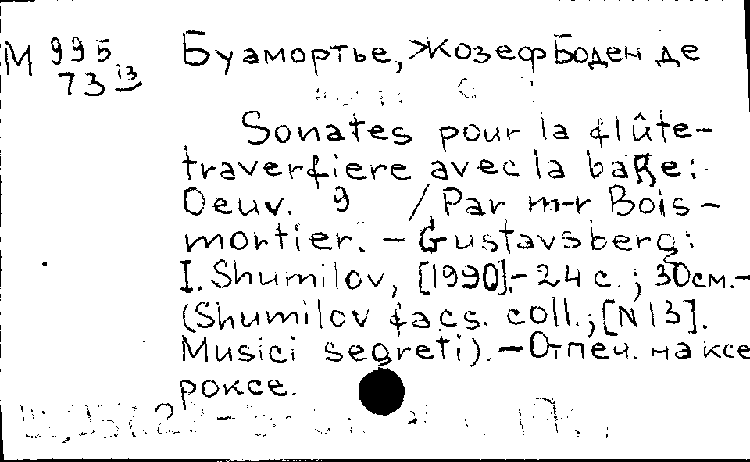 М 995 Буамортье, Жозеф Боден де
73 13
Sonates pour la flûte-
traverfiere avec la baße:
Oeuv. 9 / Par m-r Bois-
mortier. – Gustavsberg:
I. Shumilov, [1990].- 24 с.; 30см.-
(Shumilov facs. coll.; [N 13].
Musici segreti). – Отпеч. на ксе
роксе.